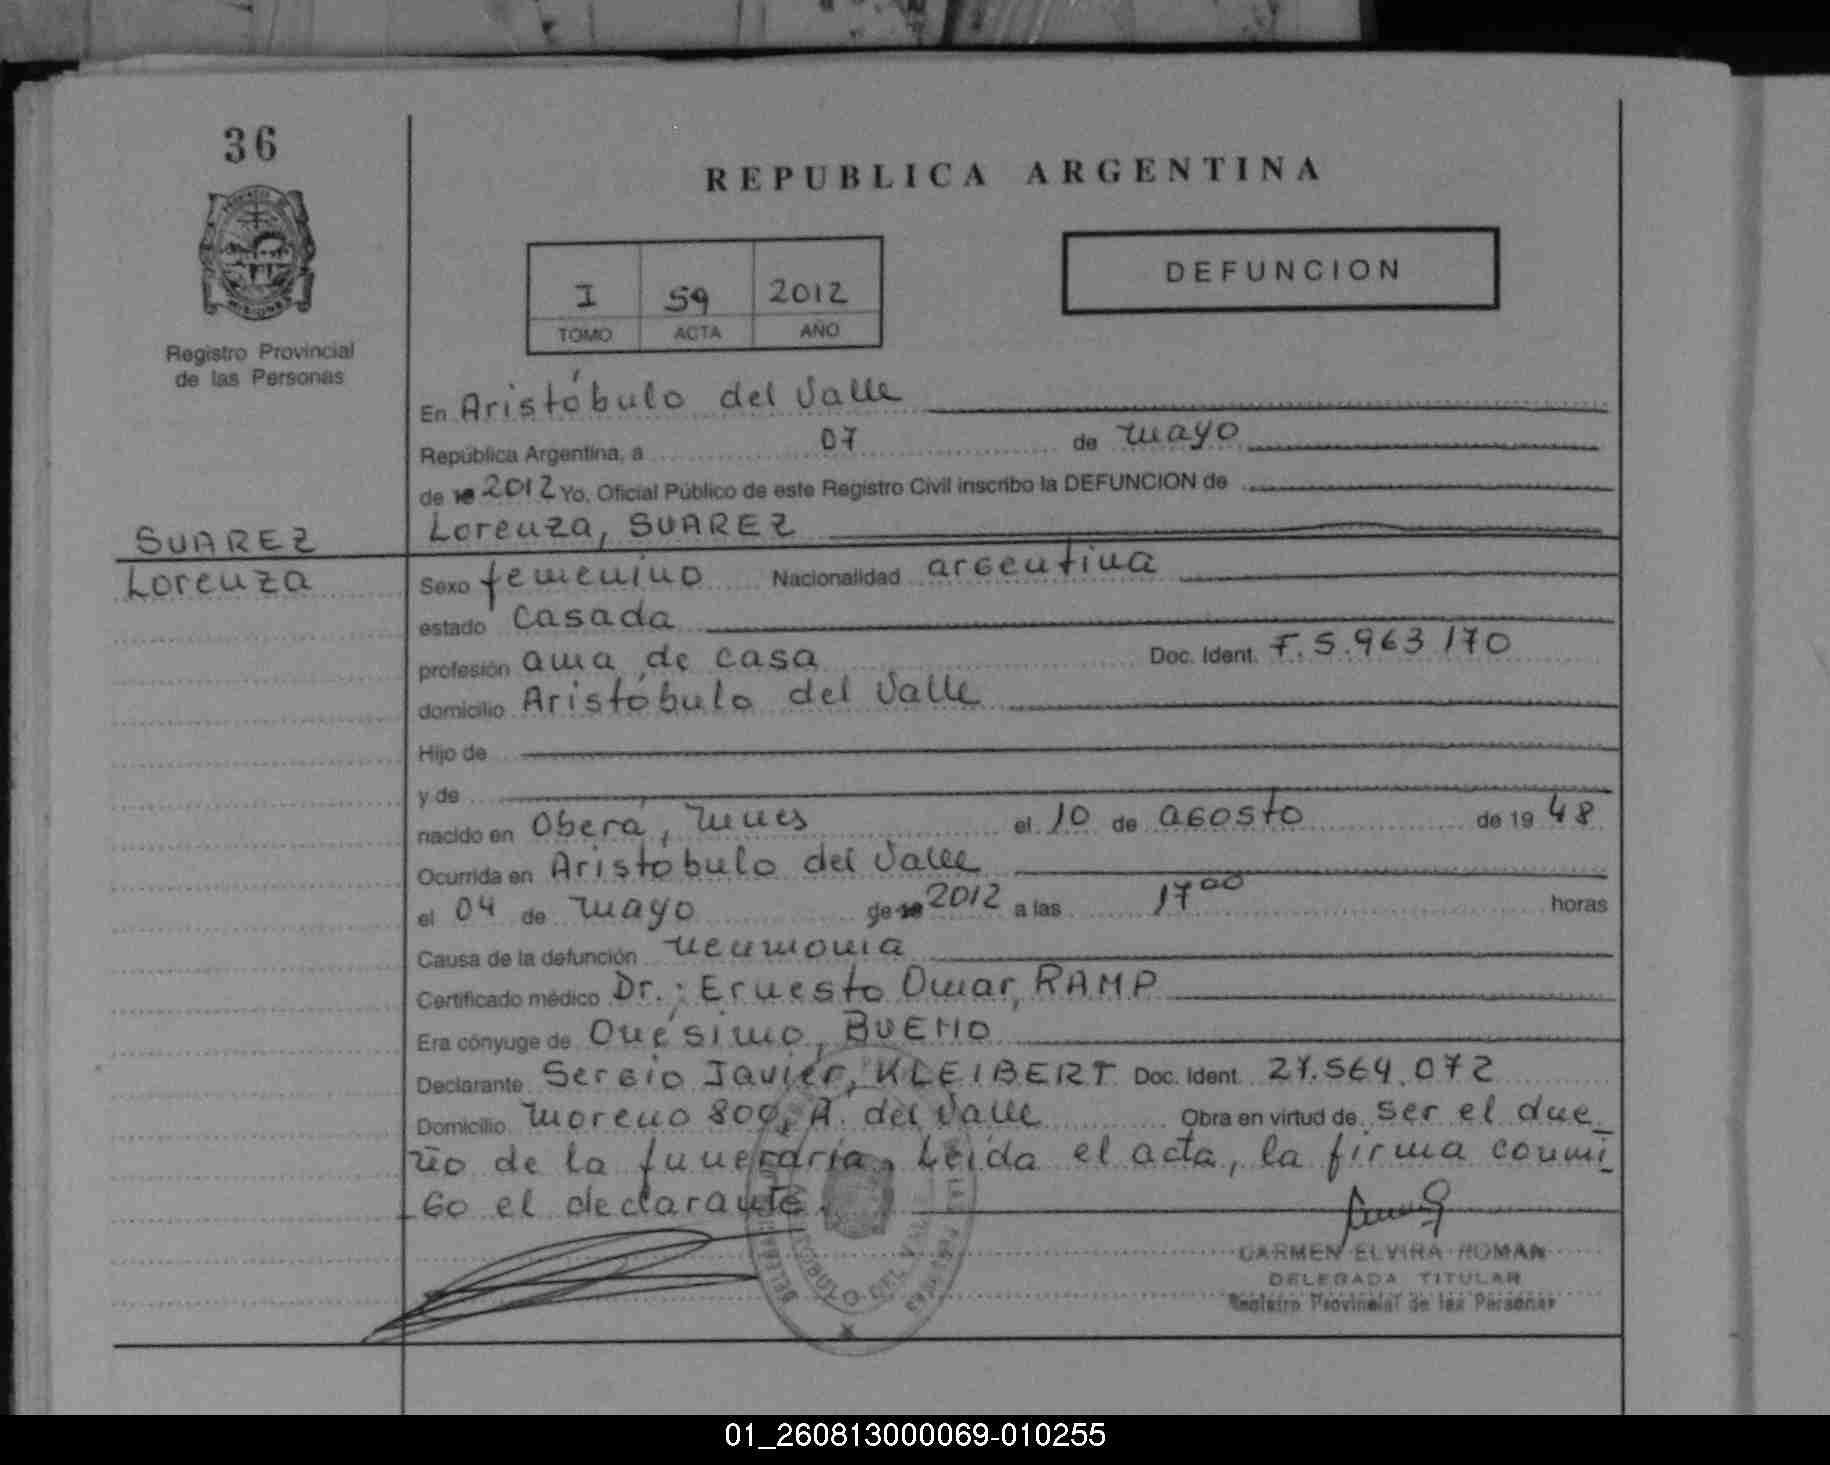 36
REPUBLICA ARGENTINA
DEFUNCION
I 59 2012
TOMO ACTA AÑO
Registro Provincial
de las Personas
En Aristóbulo del Valle
República Argentina, a 07 de mayo
de 19 2012 Yo, Oficial Público de este Registro Civil inscribo la DEFUNCION de
Lorenza, SUAREZ
SUAREZ
Lorenza
Sexo femenino Nacionalidad argentina
estado casada
profesión ama de casa Doc. Ident. F. 5.963.170
domicilio Aristóbulo del Valle
Hijo de
y de
nacido en Oberá, Mnes el 10 de agosto de 19 48
Ocurrida en Aristóbulo del Valle
el 04 de mayo de 19 2012 a las 17 00 horas
Causa de la defunción neumonia
Certificado médico Dr.: Ernesto Omar, RAMP
Era cónyuge de Onésimo, BUENO
Declarante Sergio Javier, KLEIBERT Doc. Ident. 27.564.072
Domicilio Moreno 800, A. del Valle Obra en virtud de ser el due_
ño de la funeraria. Leída el acta, la firma conmi_
go el declarante.
CARMEN ELVIRA ROMAN
DELEGADA TITULAR
Registro Provincial de las Personas
01_260813000069-010255